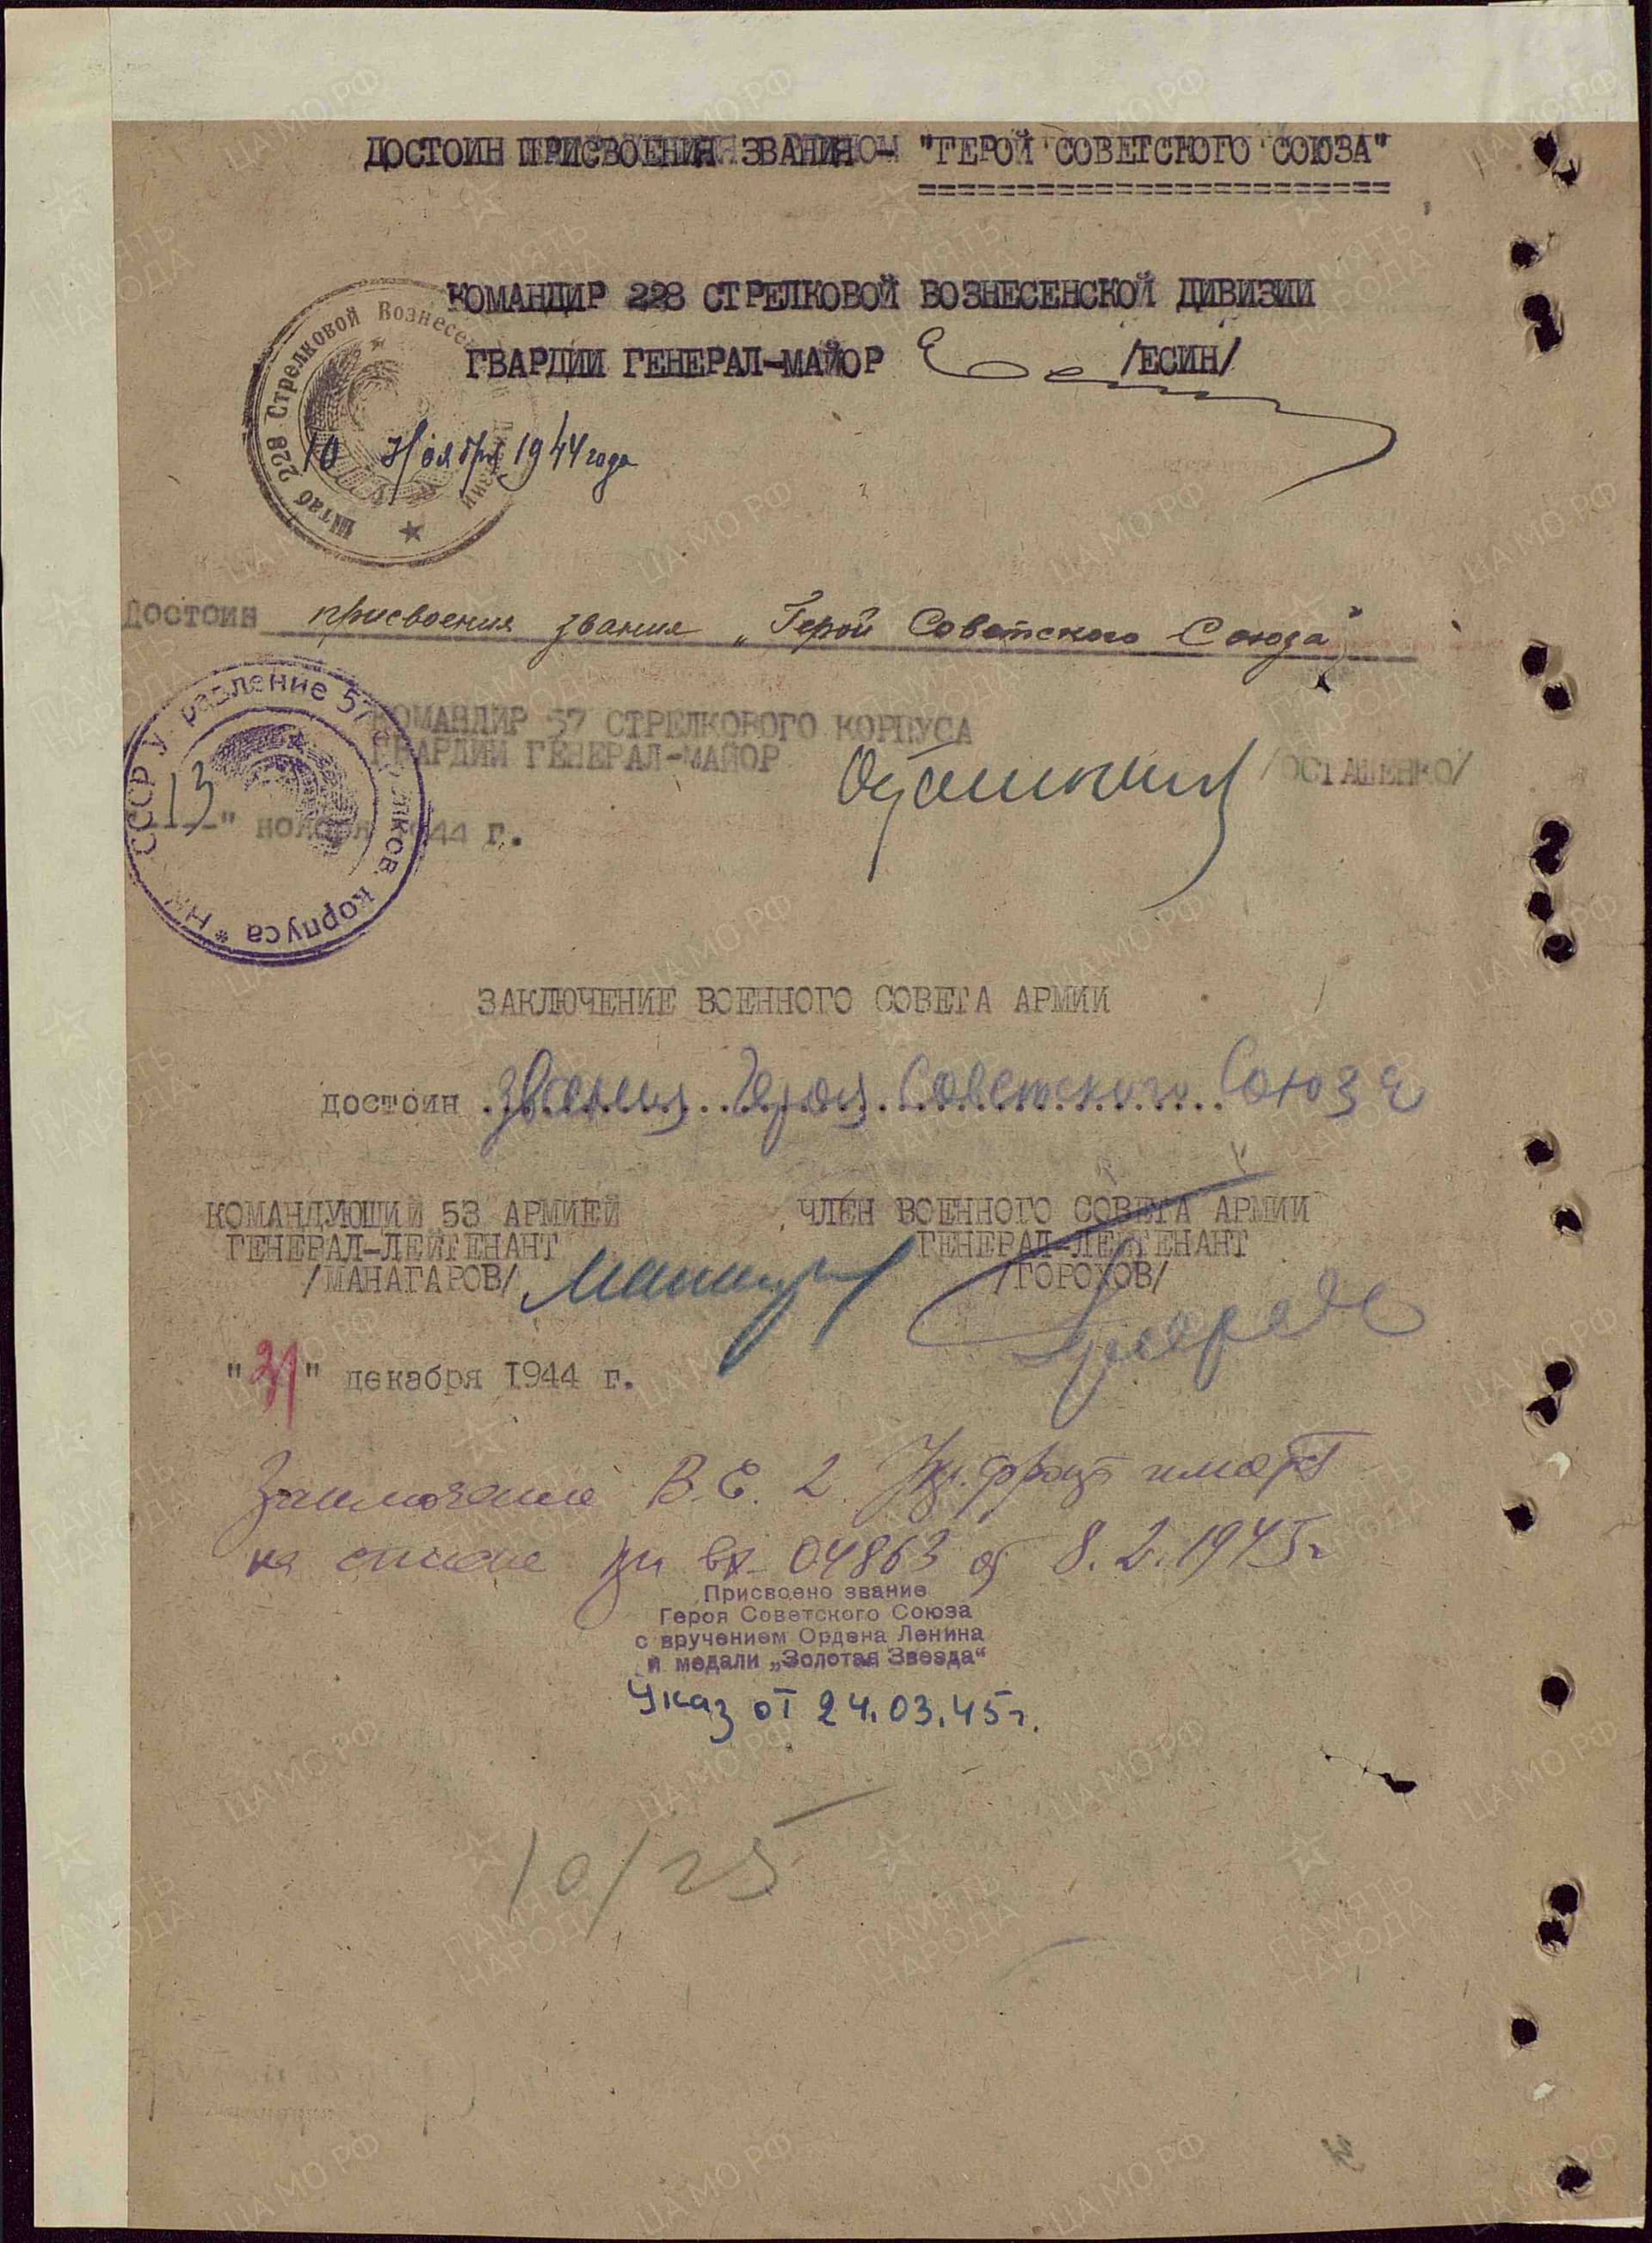 ДОСТОИН ПРИСВОЕНИЯ ЗВАНИЯ - "ГЕРОЙ СОВЕТСКОГО СОЮЗА"
КОМАНДИР 228 СТРЕЛКОВОЙ ВОЗНЕСЕНСКОЙ ДИВИЗИИ
ГВАРДИИ ГЕНЕРАЛ-МАЙОР /ЕСИН/
Штаб 228 Стрелковой Вознесен
10 Ноября 1944 года
Достоин присвоения звания „Герой Советского Союза"
КОМАНДИР 57 СТРЕЛКОВОГО КОРПУСА
ГВАРДИИ ГЕНЕРАЛ-МАЙОР /ОСТАШЕНКО/
СССР Управление 57 корпуса
13" ноября 1944 г.
ЗАКЛЮЧЕНИЕ ВОЕННОГО СОВЕТА АРМИИ
достоин звания Героя Советского Союза
КОМАНДУЮЩИЙ 53 АРМИЕЙ ЧЛЕН ВОЕННОГО СОВЕТА АРМИИ
ГЕНЕРАЛ-ЛЕЙТЕНАНТ ГЕНЕРАЛ-ЛЕЙТЕНАНТ
/МАНАГАРОВ/ /ГОРОХОВ/
"31" декабря 1944 г.
Заключение В.С. 2 Укр. фронта
на списке при вх 04863 от 8.2.1945г
Присвоено звание
Героя Советского Союза
с вручением Ордена Ленина
и медали „Золотая Звезда"
Указ от 24.03.45г.
10/25
ЦА МО РФ
ПАМЯТЬ
НАРОДА